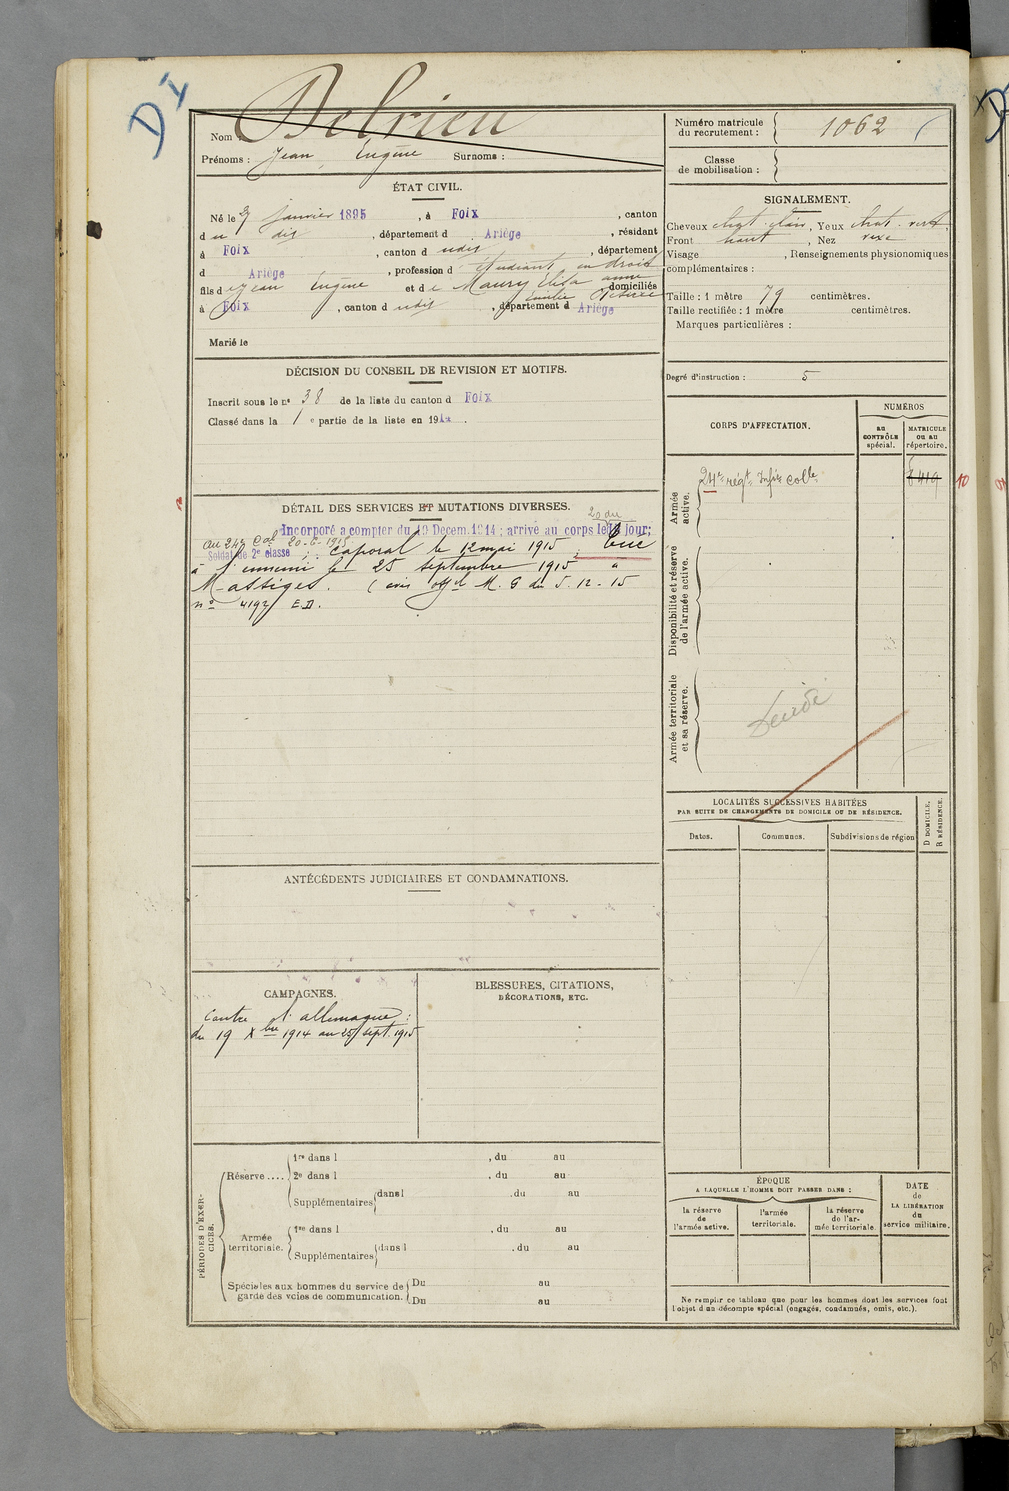 DI
Nom : Delrieu
Prénoms : Jean Eugène Surnoms :
ÉTAT CIVIL.
Né le 27 Janvier 1895, à Foix, canton
d u dit, département d Ariège, résidant
à Foix, canton d udit, département
d Ariège, profession d étudiant en droit
fils d e Jean Eugène et d e Maury Elisa anne
Emilie domiciliés
à Foix, canton d udit, département d Ariège
Marié le
DÉCISION DU CONSEIL DE REVISION ET MOTIFS.
Inscrit sous le n° 38 de la liste du canton d Foix
Classé dans la 1 e partie de la liste en 1914.
DÉTAIL DES SERVICES ET MUTATIONS DIVERSES.
20 du
Incorporé a compter du 19 Decem. 1914 ; arrivé au corps le dit jour;
au 24e Col 20-6-1915
Soldat de 2e classe ; Caporal le 12 mai 1915. Tué
à l'ennemi le 25 septembre 1915 à
Massiges. (avis offel M. G du 5.12-15
n° 4197 E.D.
ANTÉCÉDENTS JUDICIAIRES ET CONDAMNATIONS.
CAMPAGNES.
Contre l'allemagne :
du 19 Xbre 1914 au 25 sept. 1915
BLESSURES, CITATIONS,
DÉCORATIONS, ETC.
PÉRIODES D'EXERCICES.
Réserve....
1re dans l , du au
2e dans l , du au
Supplémentaires dans l , du au
Armée territoriale.
1re dans l , du au
Supplémentaires dans l , du au
Spéciales aux hommes du service de garde des voies de communication.
Du au
Du au
Numéro matricule
du recrutement : 1062
Classe
de mobilisation :
SIGNALEMENT.
Cheveux chat. clair, Yeux chat. vert
Front haut, Nez vexe
Visage , Renseignements physionomiques
complémentaires :
Taille : 1 mètre 79 centimètres.
Taille rectifiée : 1 mètre centimètres.
Marques particulières :
Degré d'instruction : 5
CORPS D'AFFECTATION.
NUMÉROS
AU CONTRÔLE spécial.
MATRICULE OU AU répertoire.
Armée active.
24e régt Infie colle
8419
10
Disponibilité et réserve de l'armée active.
Armée territoriale et sa réserve.
LOCALITÉS SUCCESSIVES HABITÉES
PAR SUITE DE CHANGEMENTS DE DOMICILE OU DE RÉSIDENCE.
Dates.
Communes.
Subdivisions de région
D DOMICILE.
R RÉSIDENCE.
ÉPOQUE
A LAQUELLE L'HOMME DOIT PASSER DANS :
la réserve de l'armée active.
l'armée territoriale.
la réserve de l'armée territoriale.
DATE de LA LIBÉRATION du service militaire.
Ne remplir ce tableau que pour les hommes dont les services font
l'objet d'un décompte spécial (engagés, condamnés, omis, etc.).